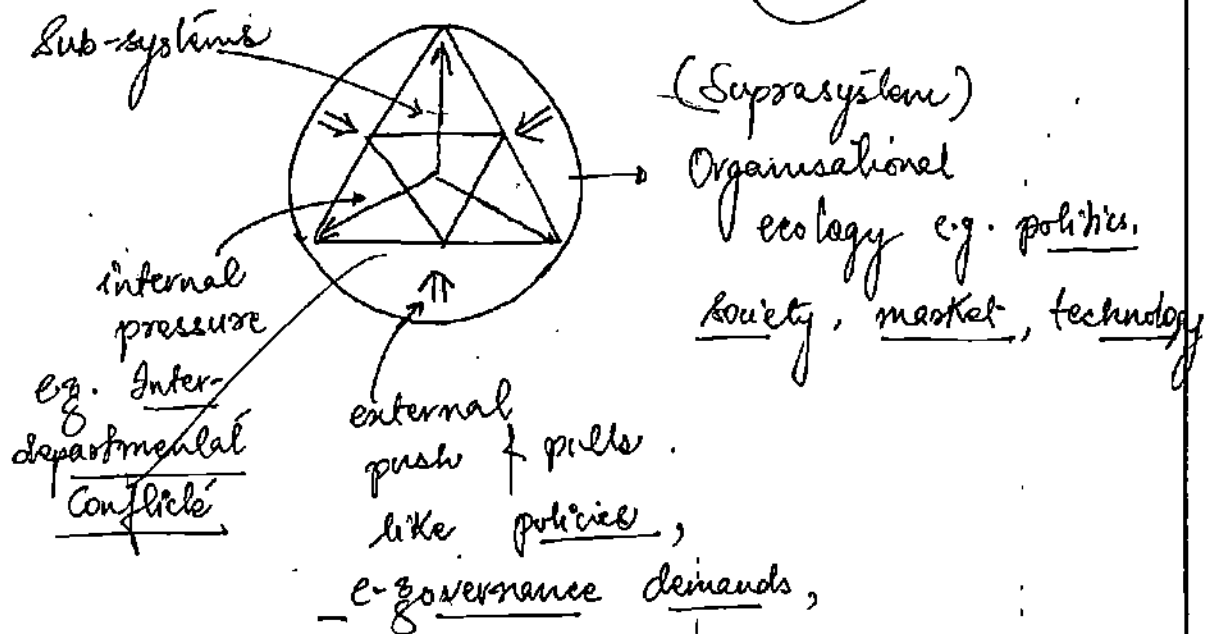 Sub-systems
(Suprasystem)
Organisational
ecology e.g. politics,
society, market, technology
internal
pressure
e.g. Inter-
departmental
Conflict
external
push & pulls.
like policies,
e-governance demands,